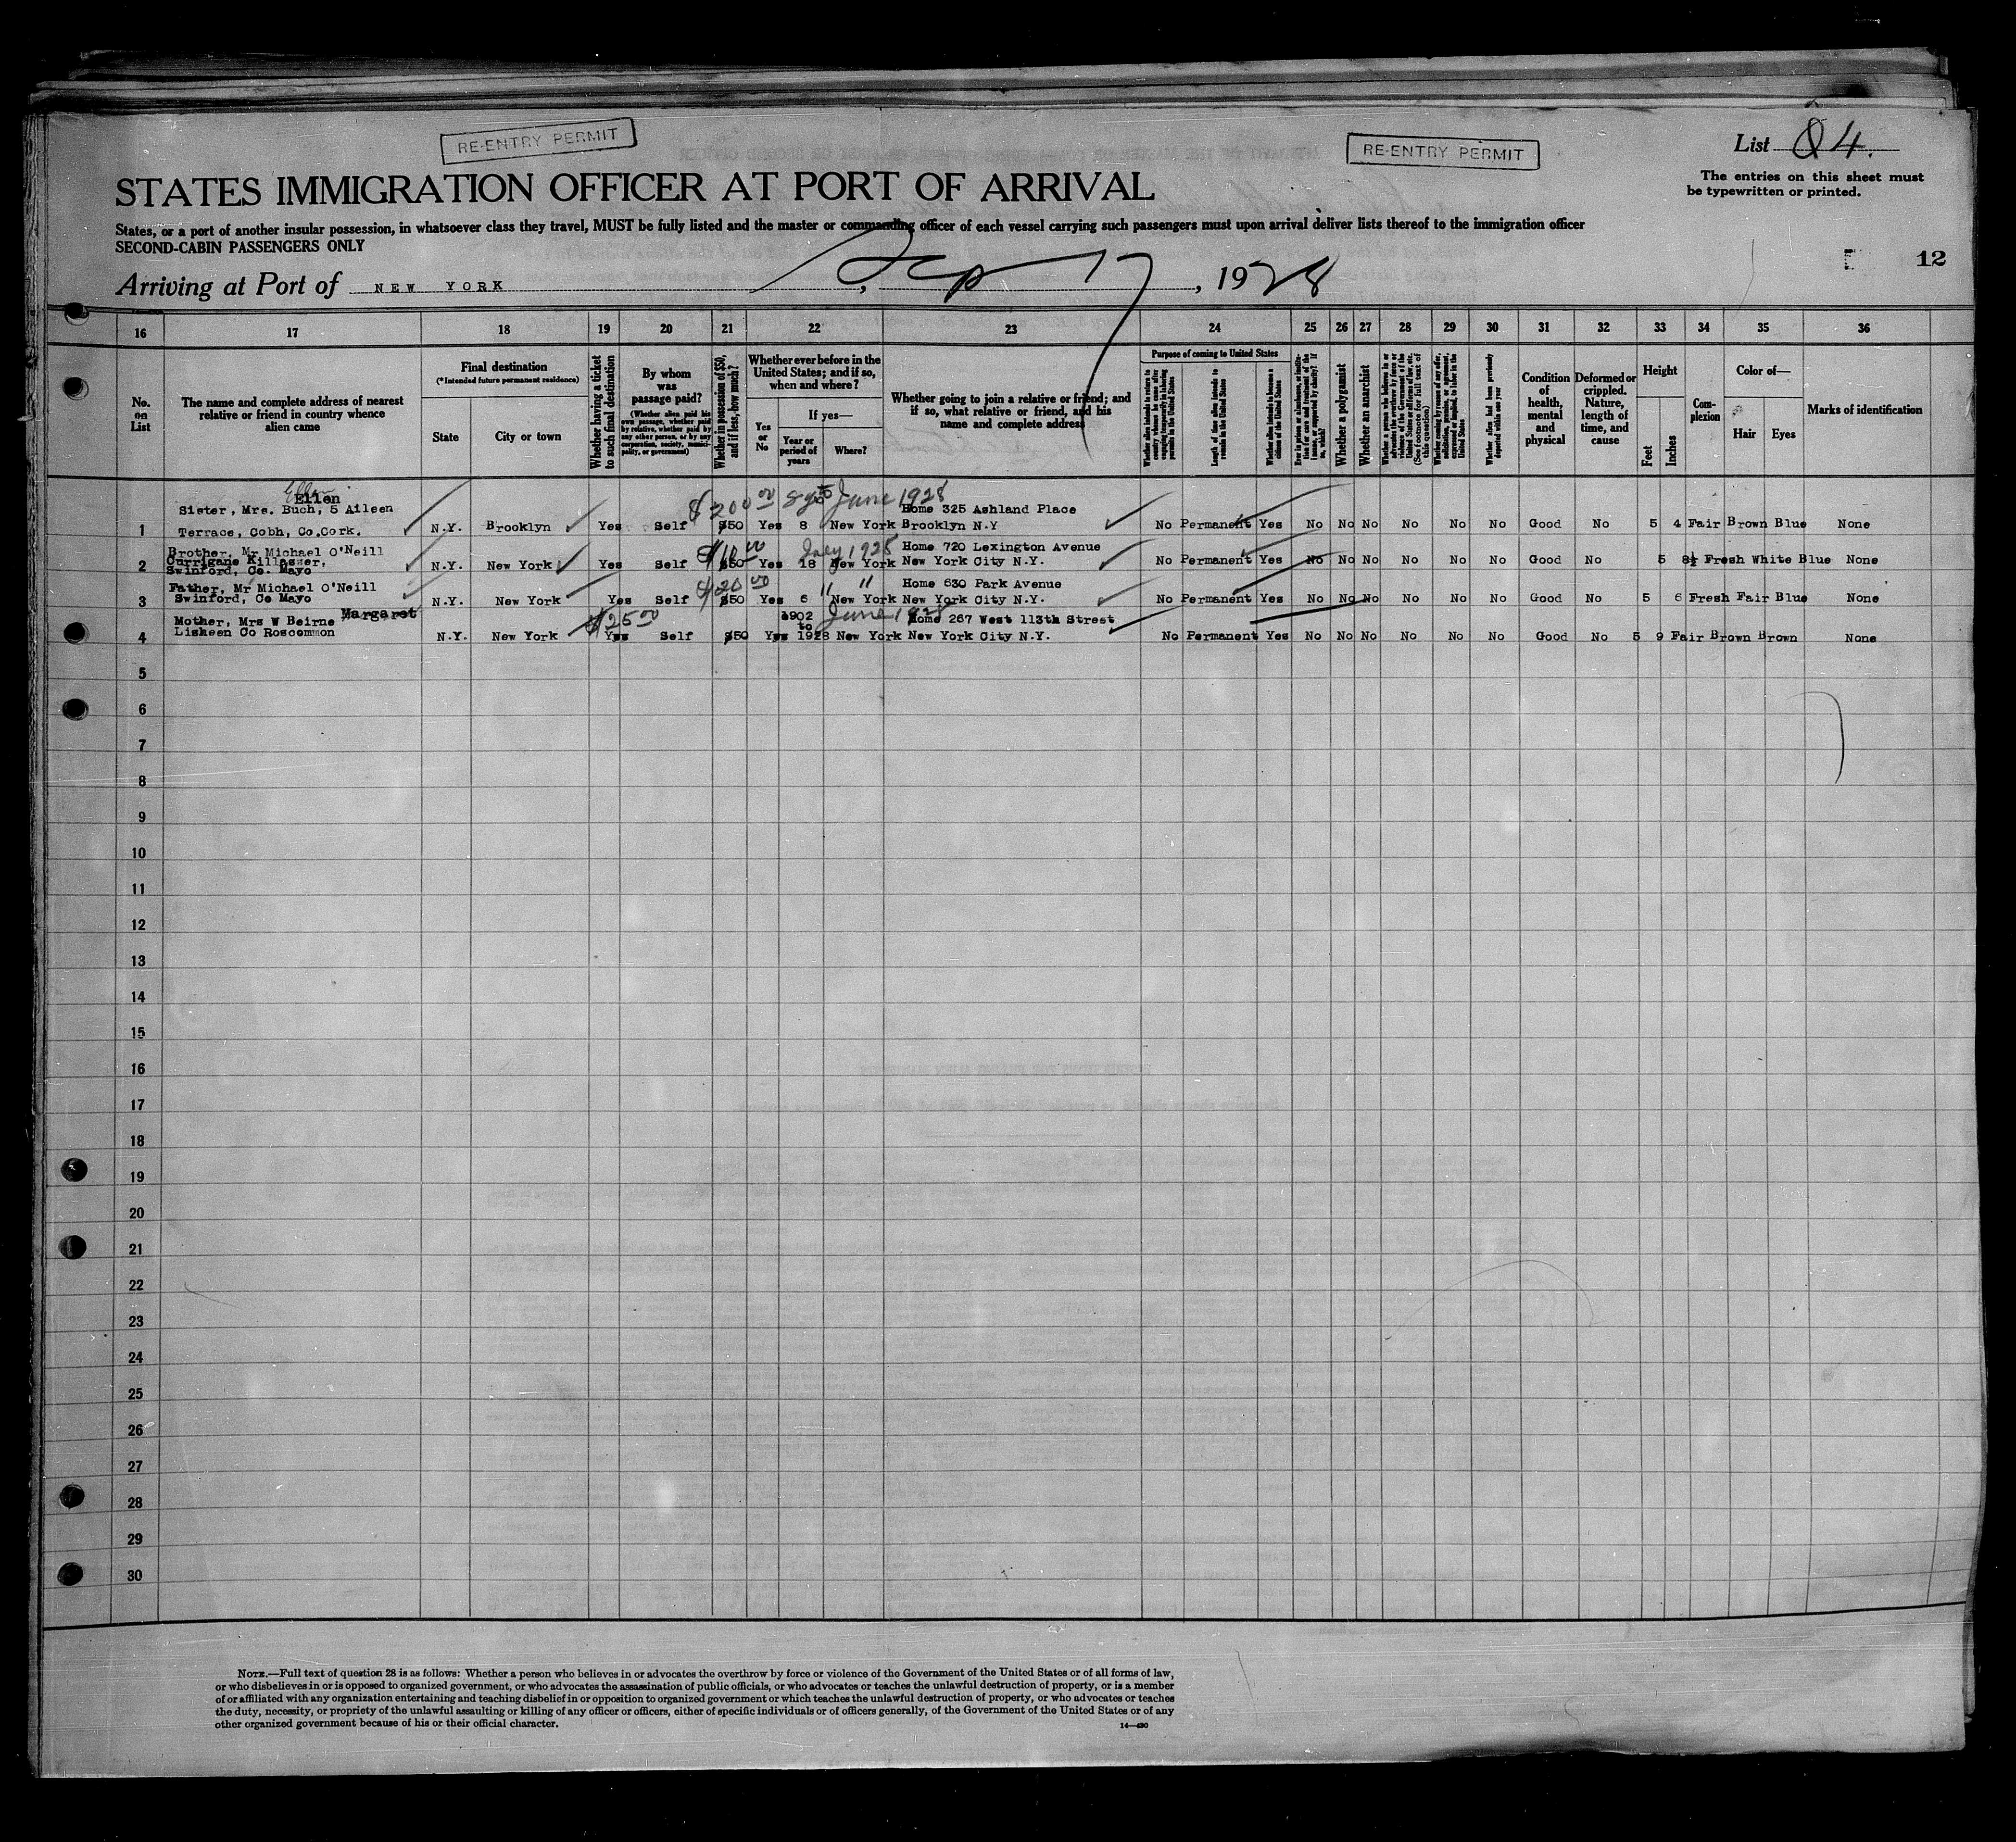 RE-ENTRY PERMIT
RE-ENTRY PERMIT
List 4.
STATES IMMIGRATION OFFICER AT PORT OF ARRIVAL
The entries on this sheet must
be typewritten or printed.
States, or a port of another insular possession, in whatsoever class they travel, MUST be fully listed and the master or commanding officer of each vessel carrying such passengers must upon arrival deliver lists thereof to the immigration officer
SECOND-CABIN PASSENGERS ONLY
12
Arriving at Port of NEW YORK, Sep 17, 1928
16 17 18 19 20 21 22 23 24 25 26 27 28 29 30 31 32 33 34 35 36
No.
on
List
The name and complete address of nearest
relative or friend in country whence
alien came
Final destination
(*Intended future permanent residence)
State
City or town
Whether having a ticket
to such final destination
By whom
was
passage paid?
(Whether alien paid his
own passage, whether paid
by relative, whether paid by
any other person, or by any
corporation, society, munici-
pality, or government)
Whether in possession of $50,
and if less, how much?
Whether ever before in the
United States; and if so,
when and where?
Yes
or
No
If yes—
Year or
period of
years
Where?
Whether going to join a relative or friend; and
if so, what relative or friend, and his
name and complete address
Purpose of coming to United States
Whether alien intends to return to
country whence he came after
engaging temporarily in laboring
pursuits in the United States
Length of time alien intends to
remain in the United States
Whether alien intends to become a
citizen of the United States
Ever in prison or almshouse, or institu-
tion for care and treatment of the
insane, or supported by charity? If
so, which?
Whether a polygamist
Whether an anarchist
Whether a person who believes in or
advocates the overthrow by force or
violence of the Government of the
United States or all forms of law, etc.
(See footnote for full text of
this question)
Whether coming by reason of any offer,
solicitation, promise, or agreement,
expressed or implied, to labor in the
United States
Whether alien had been previously
deported within one year
Condition
of
health,
mental
and
physical
Deformed or
crippled.
Nature,
length of
time, and
cause
Height
Feet
Inches
Com-
plexion
Color of—
Hair
Eyes
Marks of identification
Ellen
Ellen
Sister, Mrs. Buch, 5 Aileen $200 00 8 yrs June 1928 Home 325 Ashland Place
1 Terrace, Cobh, Co.Cork. N.Y. Brooklyn Yes Self $50 Yes 8 New York Brooklyn N.Y No Permanent Yes No No No No No No Good No 5 4 Fair Brown Blue None
Brother, Mr Michael O'Neill $10 00 July 1928 Home 720 Lexington Avenue
Currigane Killasser,
2 Swinford, Co. Mayo N.Y. New York Yes Self $50 Yes 18 New York New York City N.Y. No Permanent Yes No No No No No No Good No 5 8½ Fresh White Blue None
Father, Mr Michael O'Neill $20 00 " " Home 630 Park Avenue
3 Swinford, Co Mayo N.Y. New York Yes Self $50 Yes 6 New York New York City N.Y. No Permanent Yes No No No No No No Good No 5 6 Fresh Fair Blue None
Mother, Mrs W Beirne Margaret $25 00 1902 to June 1928 Home 267 West 113th Street
4 Lisheen Co Roscommon N.Y. New York Yes Self $50 Yes 1928 New York New York City N.Y. No Permanent Yes No No No No No No Good No 5 9 Fair Brown Brown None
5
6
7
8
9
10
11
12
13
14
15
16
17
18
19
20
21
22
23
24
25
26
27
28
29
30
NOTE.—Full text of question 28 is as follows: Whether a person who believes in or advocates the overthrow by force or violence of the Government of the United States or of all forms of law,
or who disbelieves in or is opposed to organized government, or who advocates the assassination of public officials, or who advocates or teaches the unlawful destruction of property, or is a member
of or affiliated with any organization entertaining and teaching disbelief in or opposition to organized government or which teaches the unlawful destruction of property, or who advocates or teaches
the duty, necessity, or propriety of the unlawful assaulting or killing of any officer or officers, either of specific individuals or of officers generally, of the Government of the United States or of any
other organized government because of his or their official character.
14—430